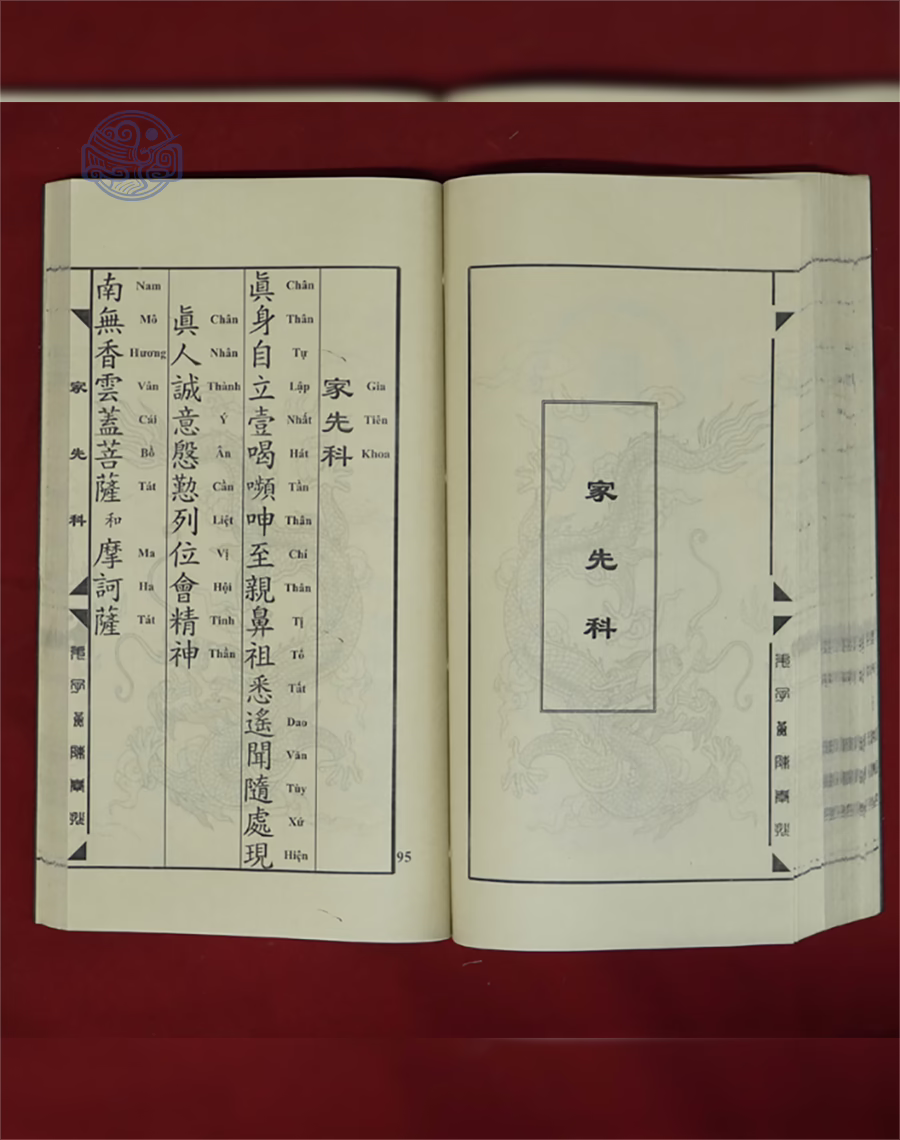 家先科
家先科
Gia Tiên Khoa
眞身自立壹喝嚬呻至親鼻祖悉遙聞隨處現
Chân Thân Tự Lập Nhất Hát Tần Thân Chí Thân Tị Tổ Tất Dao Văn Tùy Xứ Hiện
眞人誠意慇懃列位會精神
Chân Nhân Thành Ý Ân Cần Liệt Vị Hội Tinh Thần
南無香雲蓋菩薩和摩訶薩
Nam Mô Hương Vân Cái Bồ Tát Ma Ha Tát
家先科
95